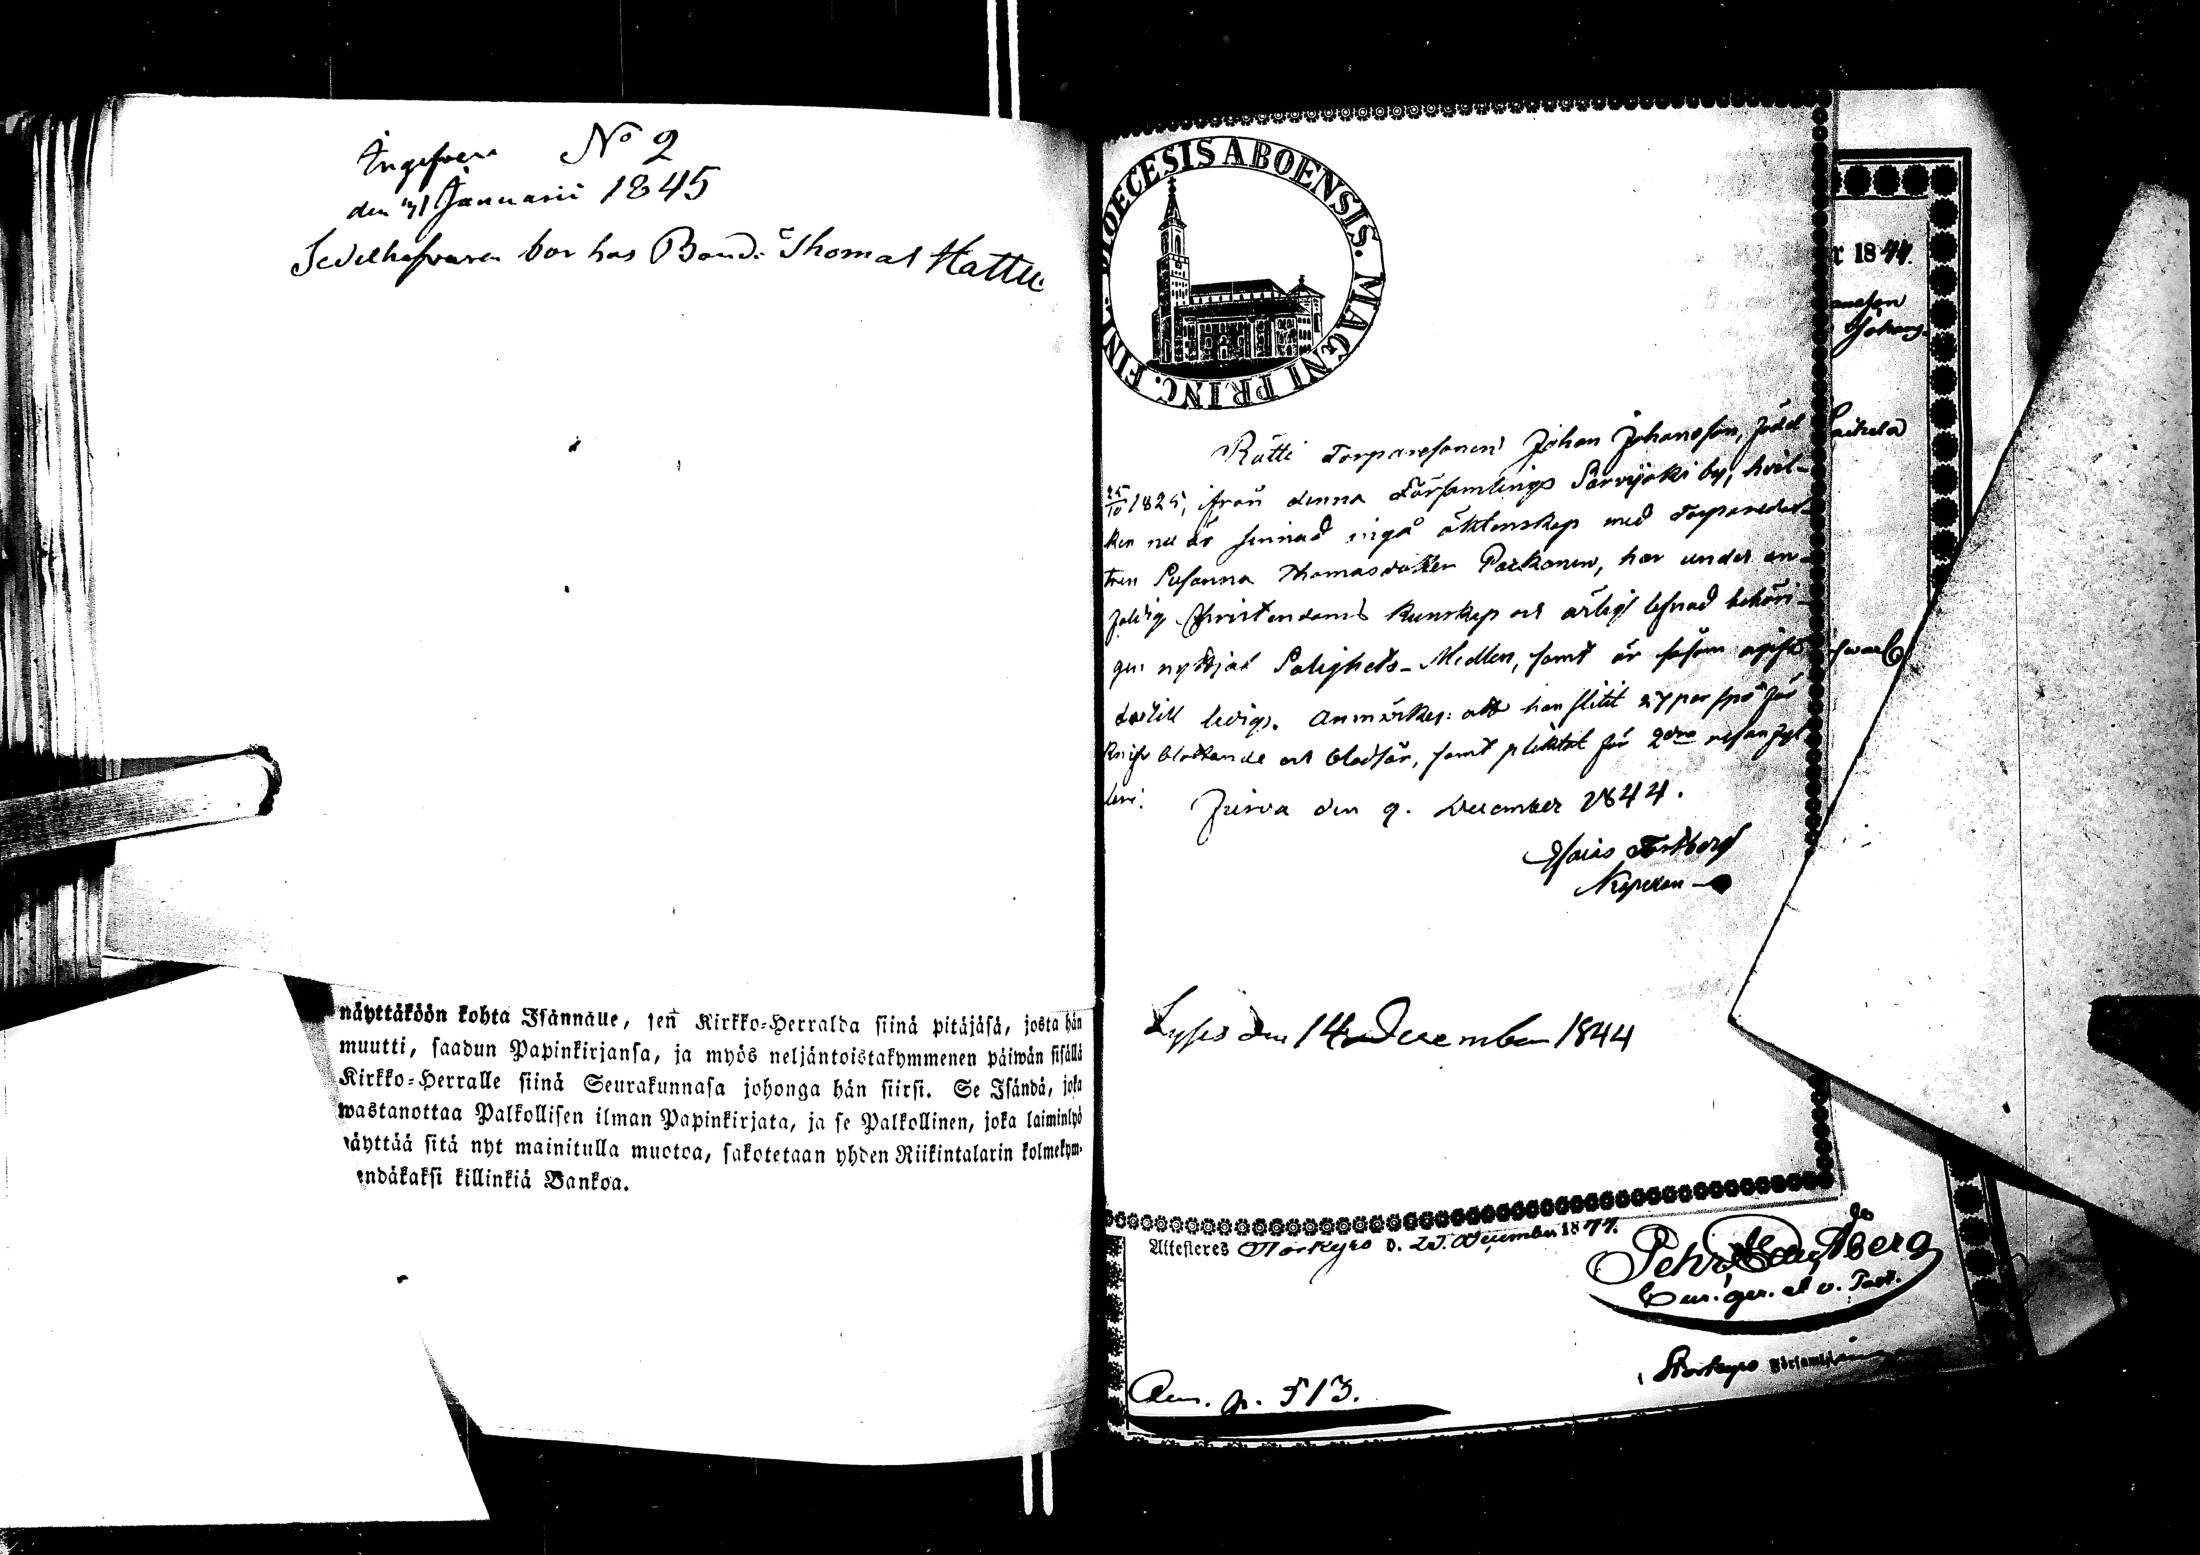 Angifven No 2
den Januarii 1845
Sedelhafvaren bor hos Bond. Thomas Hattu
näyttäköön kohta Isännälle, sen Kirkko-Herralda siinä pitäjäsä, josta hän
muutti, saadun Papinkirjansa, ja myös neljäntoistakymmenen päiwän sisällä
Kirkko-Herralle siinä Seurakunnasa johonga hän siirsi. Se Isändä, joka
wastanottaa Palkollisen ilman Papinkirjata, ja se Palkollinen, joka laiminlyö
näyttää sitä nyt mainitulla muotoa, sakotetaan yhden Riikintalarin kolmekym-
endäkaksi killinkiä Bankoa.
DIOECESIS ABOENSIS. MAGNI PRINC. FINL.
Torparesonen Johan Johansson, född
25/10 1825, ifrån denna Församlings Sarvijoki by, hvil-
ken nu är sinnad ingå äktenskap med Torparedot-
tren Susanna Thomasdotter Parkonen, har under an-
ständig Christendoms kunskap och ärligt lefnad behöri-
gen nyttjat Salighets-Medlen, samt är såsom
dertill ledig. Anmärkes: att han slitit 27 par spö för
knifs blottande och blodsår, samt pliktat för 2dra resan fyl-
leri. Jurva den 9. December 1844.
Esaias Forsberg
Kapellan
Lyses den 14 December 1844
r 1844.
Johans-
Laihela
Attesteres Storkyro d. December 1844.
Pehr Åberg
Cur. ger. et v. Past.
Storkyro Församl
p. 513.